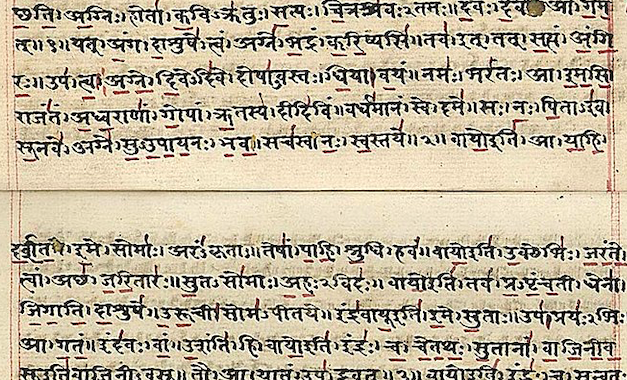 छंति। अग्निः। होता। कविऽक्रतुः। सत्यः। चित्रश्रवःऽतमः॥ देवः। आ। गम
त्॥५॥ यत्। अंग। दाशुषे। त्वं। अग्ने। भद्रं। करिष्यसि॥ तव। इत्। तत्। सत्यं। अंगि
रः॥ उप। त्वा। अग्ने। दिवेऽदिवे। दोषाऽवस्तः॥ धिया। वयं॥ नमः। भरंतः। आ। इमसि
राजंतं। अध्वराणां। गोपां। ऋतस्य। दीदिविं॥ वर्धमानं। स्वे। दमे॥ सः। नः। पिताऽइव
सूनवे। अग्ने। सुऽउपायनः। भव॥ सचस्व। नः। स्वस्तये॥२॥ वायो इति। आ। याहि
दर्शत। इमे। सोमाः। अरंऽकृताः॥ तेषां। पाहि। श्रुधि। हवं॥ वायो इति। उक्थेभिः। जरंते
त्वां। अच्छ। जरितारः॥ सुतऽसोमाः। अहःऽविदः॥ वायो इति। तव। प्रऽपृंचती। धेना
जिगाति। दाशुषे॥ उरूची। सोमऽपीतये॥ इंद्रवायू इति। इमे। सुताः॥ उप। प्रयःऽभिः
आ। गतं॥ इंदवः। वां। उशंति। हि॥ वायो इति। इंद्रः। च। चेतथः। सुतानां। वाजिनीव
सू इति वाजिनीऽवसू॥ तौ। आ। यातं। उप। द्रवत्॥ वायो इति। इंद्रः। च। सुन्वतः